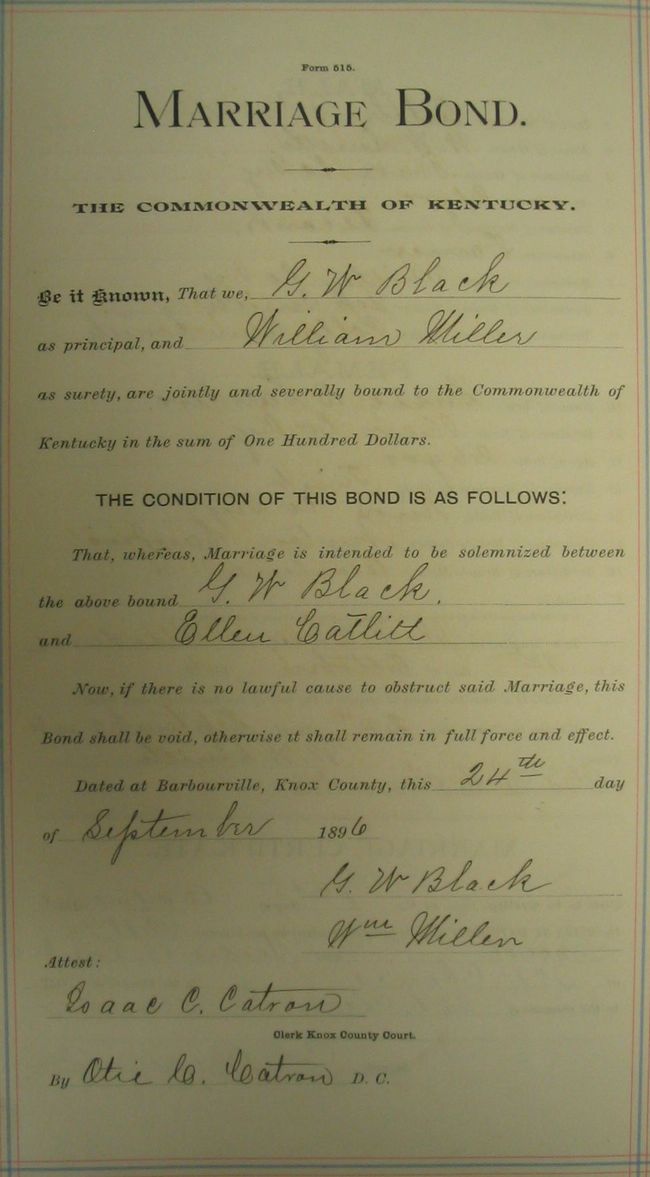 Form 515.
MARRIAGE BOND.
THE COMMONWEALTH OF KENTUCKY.
Be it Known, That we, G. W Black
as principal, and William Miller
as surety, are jointly and severally bound to the Commonwealth of
Kentucky in the sum of One Hundred Dollars.
THE CONDITION OF THIS BOND IS AS FOLLOWS:
That, whereas, Marriage is intended to be solemnized between
the above bound G. W Black.
and Ellen Catlitt
Now, if there is no lawful cause to obstruct said Marriage, this
Bond shall be void, otherwise it shall remain in full force and effect.
Dated at Barbourville, Knox County, this 24th day
of September 1896
G. W Black
Wm Miller
Attest:
Isaac C. Catron
Clerk Knox County Court.
By Otie C. Catron D. C.